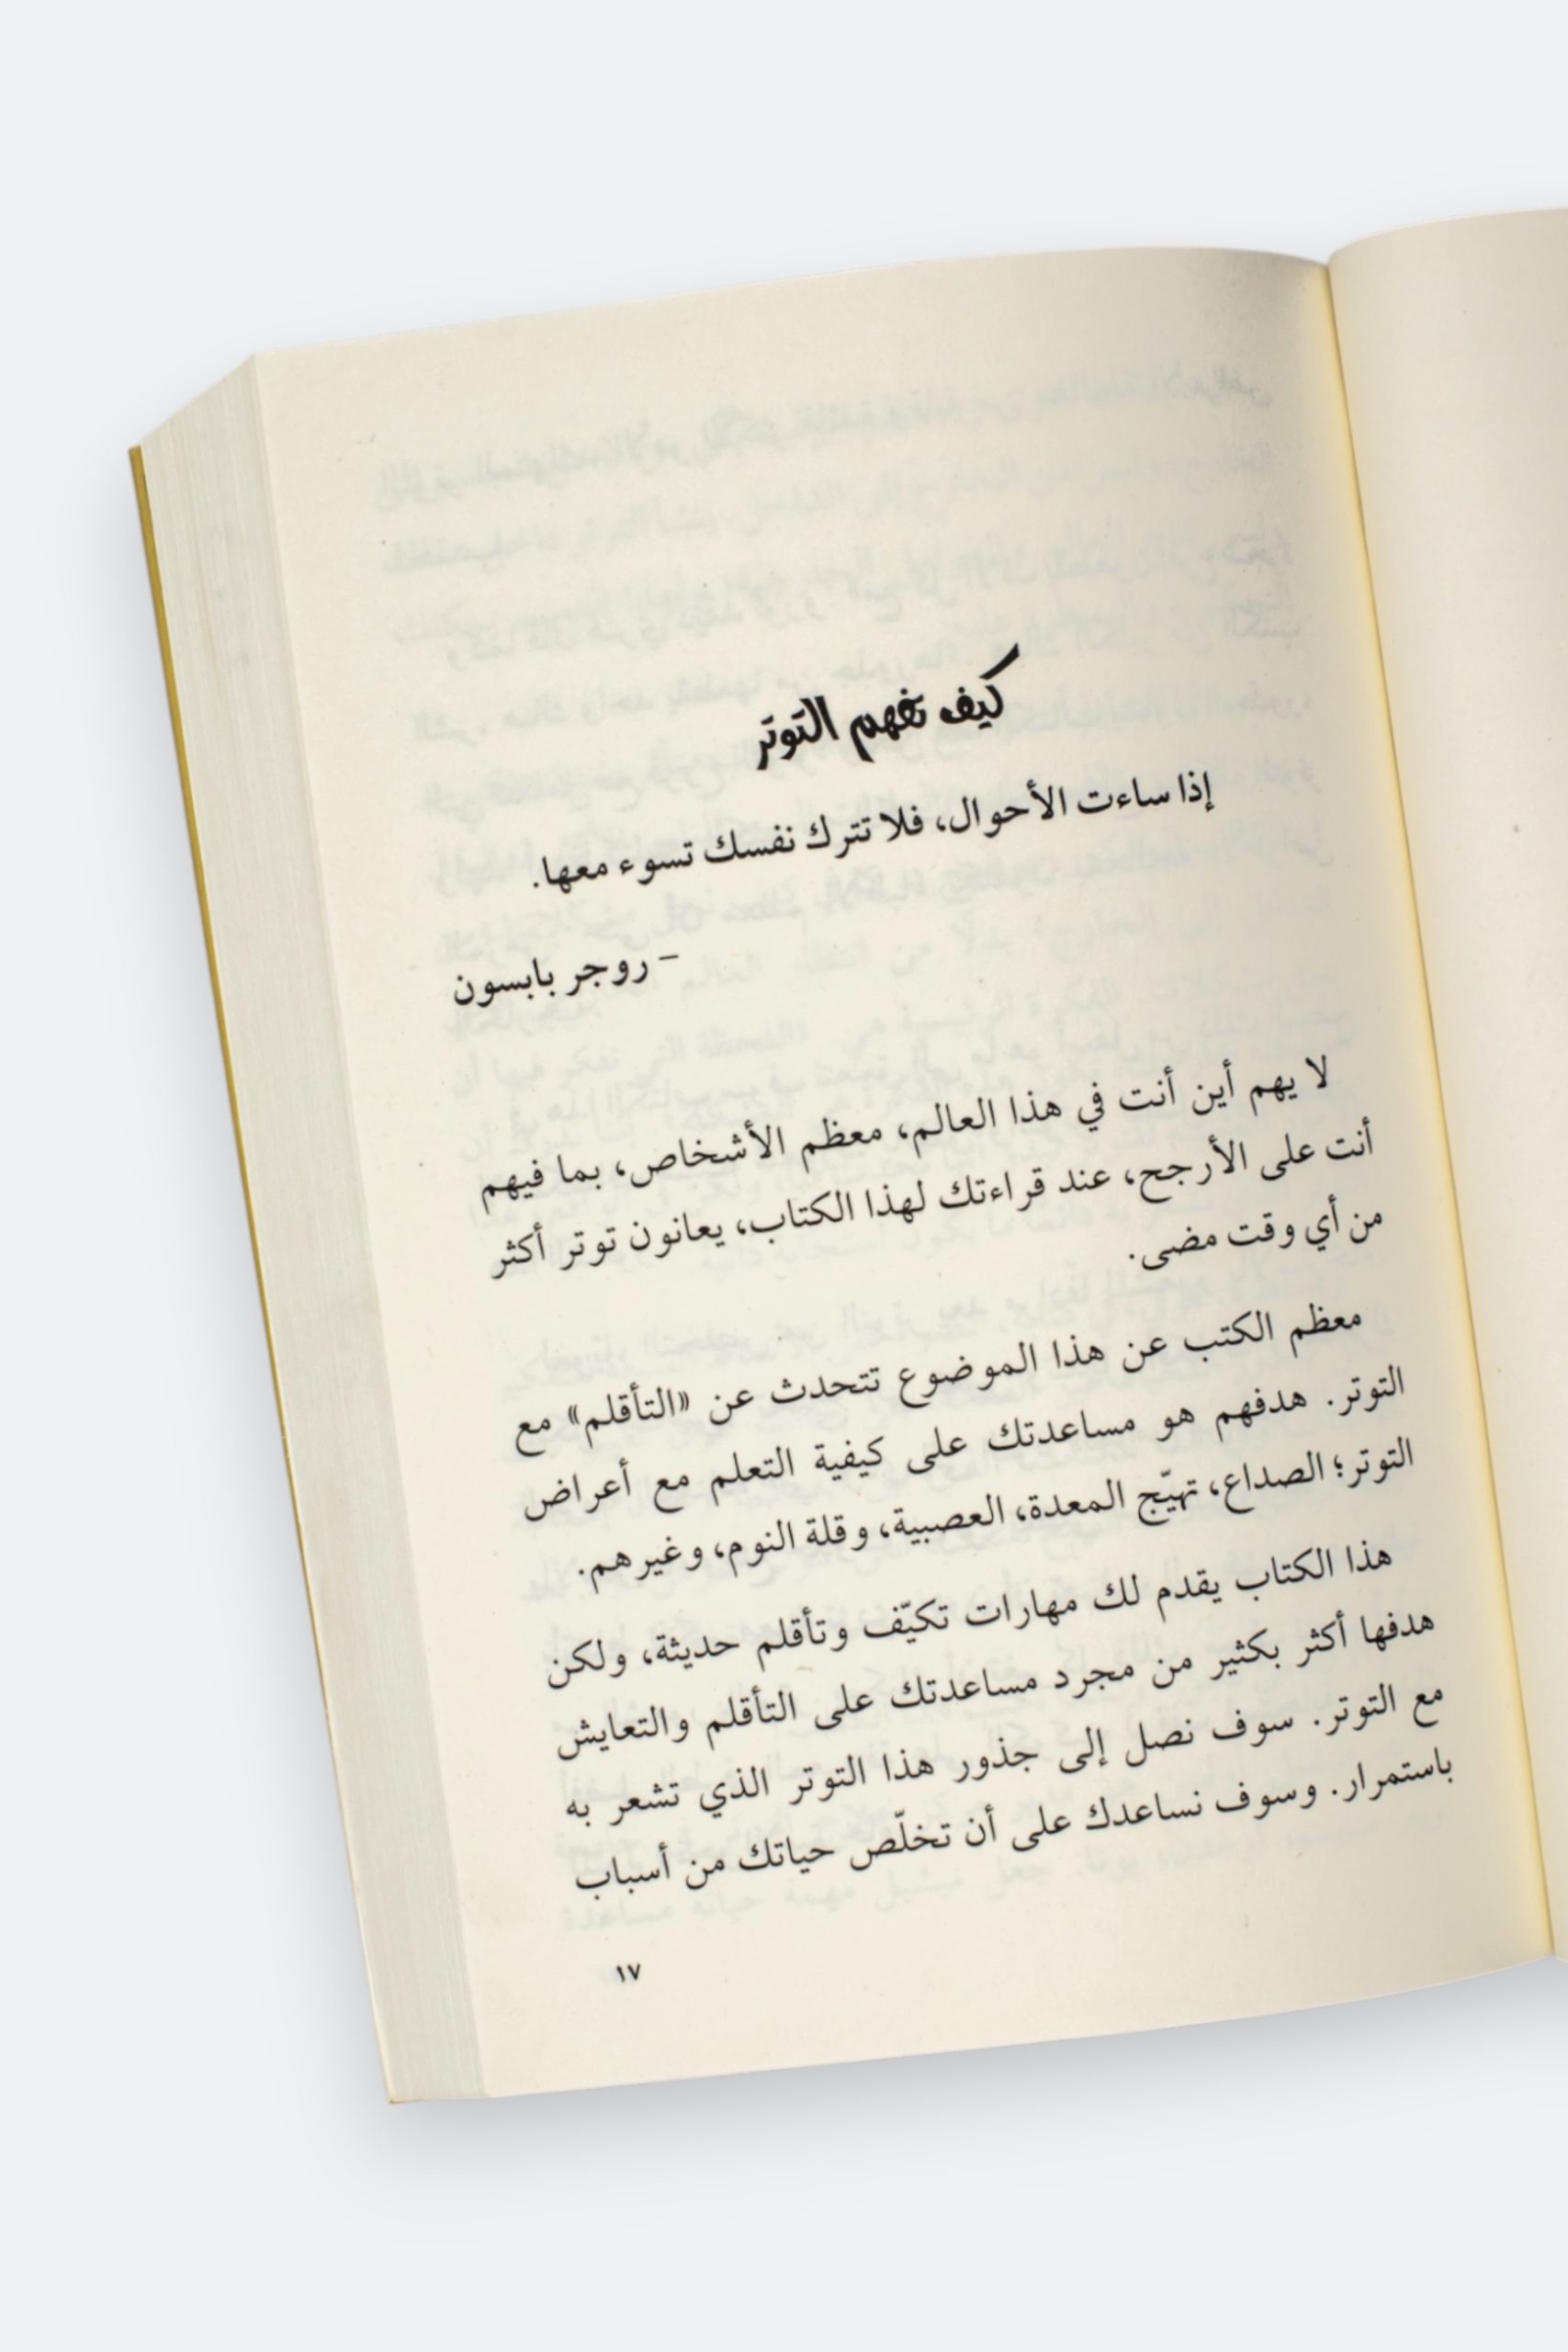 كيف نفهم التوتر
إذا ساءت الأحوال، فلا تترك نفسك تسوء معها.
– روجر بابسون
لا يهم أين أنت في هذا العالم، معظم الأشخاص، بما فيهم
أنت على الأرجح، عند قراءتك لهذا الكتاب، يعانون توتر أكثر
من أي وقت مضى.
معظم الكتب عن هذا الموضوع تتحدث عن «التأقلم» مع
التوتر. هدفهم هو مساعدتك على كيفية التعلم مع أعراض
التوتر؛ الصداع، تهيّج المعدة، العصبية، وقلة النوم، وغيرهم.
هذا الكتاب يقدم لك مهارات تكيّف وتأقلم حديثة، ولكن
هدفها أكثر بكثير من مجرد مساعدتك على التأقلم والتعايش
مع التوتر. سوف نصل إلى جذور هذا التوتر الذي تشعر به
باستمرار. وسوف نساعدك على أن تخلّص حياتك من أسباب
١٧